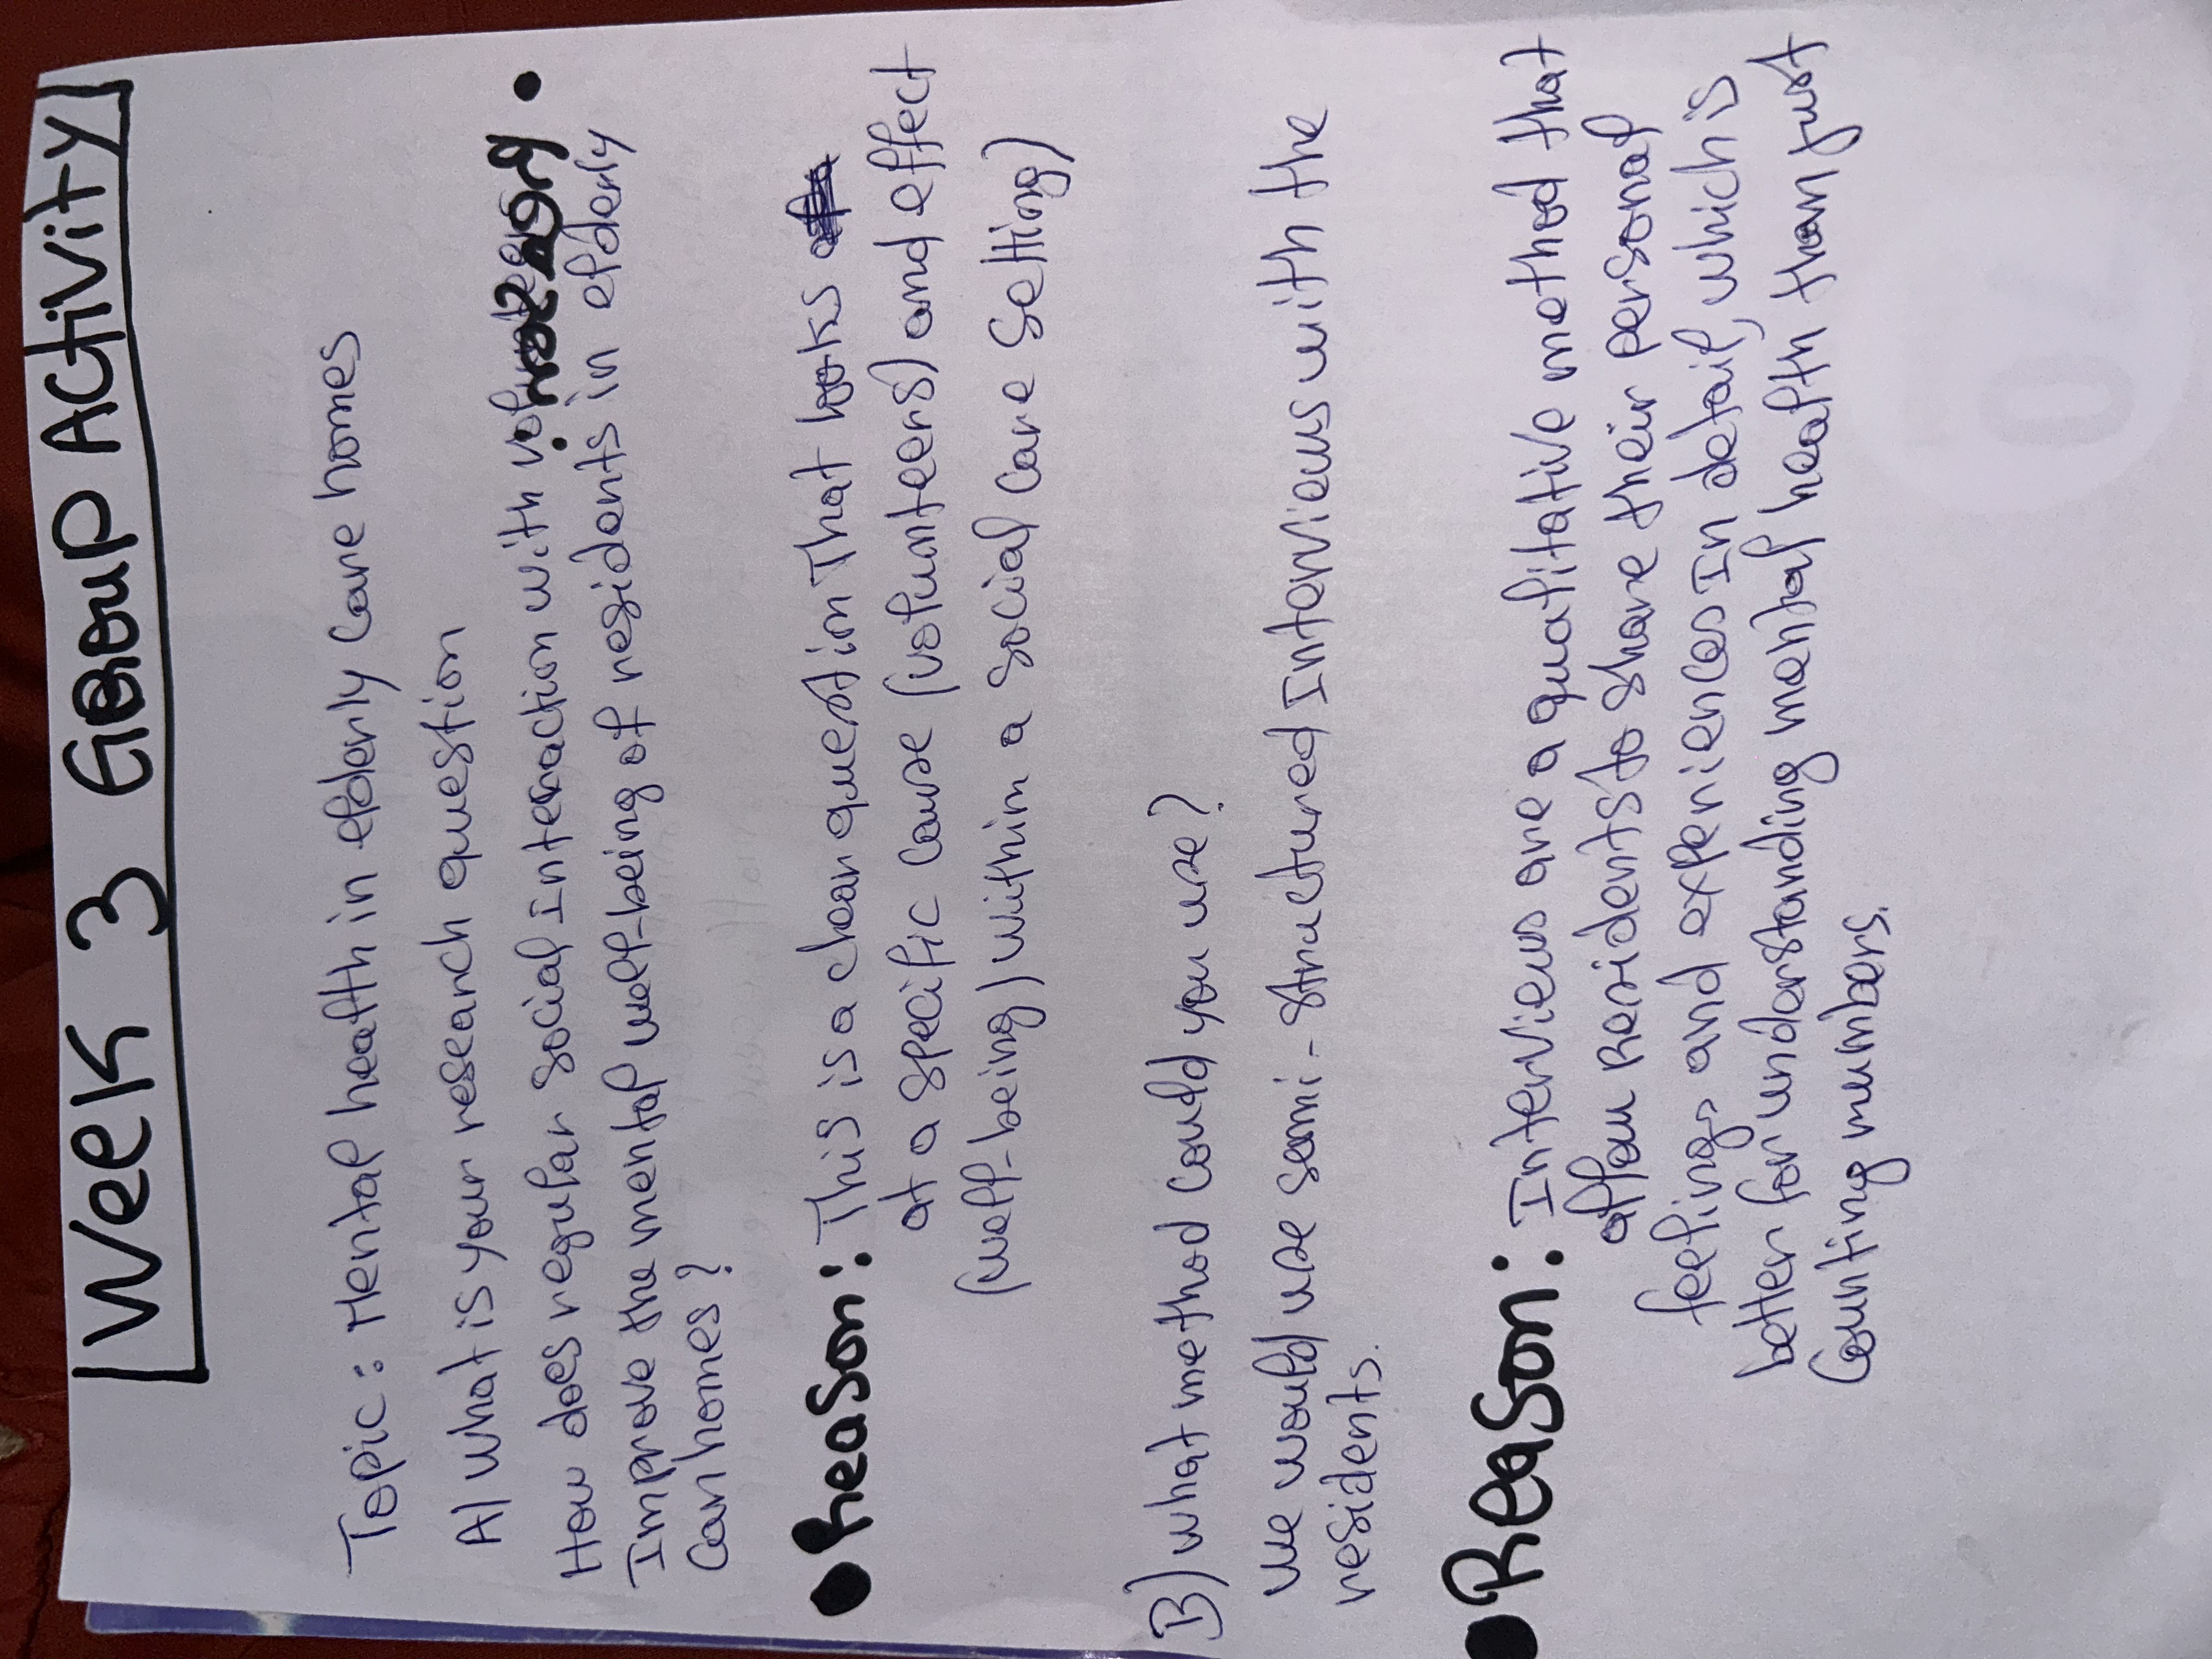 Week 3 Group Activity
Topic: Mental health in elderly care homes
A) What is your research question
How does regular social Interaction with
Improve the mental well-being of residents in elderly
Care homes?
Reason: This is a clear question That looks
at a specific cause (volunteers) and effect
(well-being) within a social care setting)
B) what method could you use?
we would use semi-structured Interviews with the
residents.
Reason: Interviews are a qualitative method that
allow residents to share their personal
feelings and experiences In detail, which is
better for understanding mental health than just
Counting numbers.